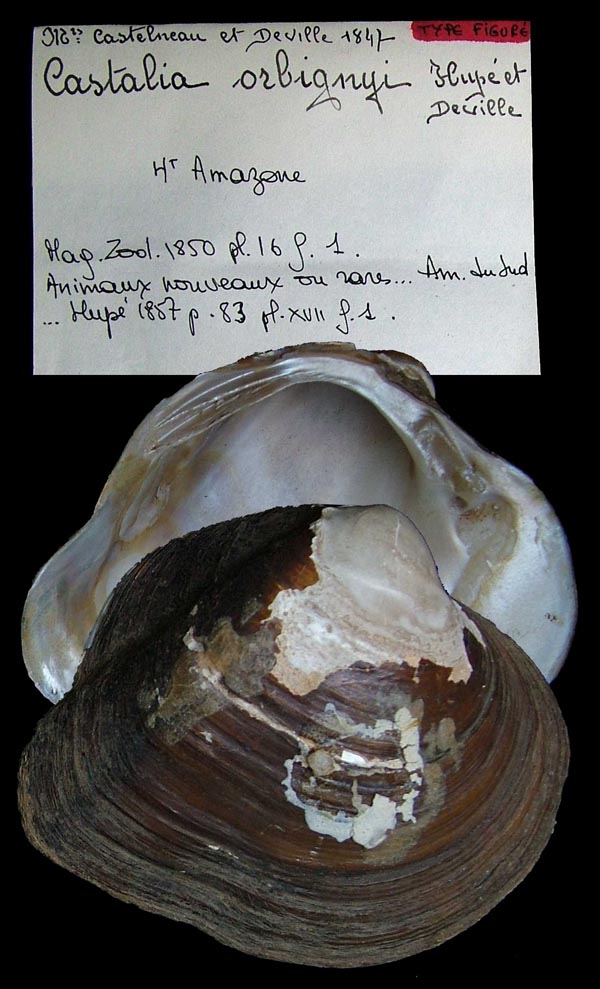 Mrs Castelneau et Deville 1847 TYPE FIGURÉ
Castalia orbignyi Hupé et
Deville
Ht Amazone
Mag. Zool. 1850 pl. 16 f. 1.
Animaux nouveaux ou rares... Am. du Sud
... Hupé 1857 p. 83 pl. XVII f. 1.